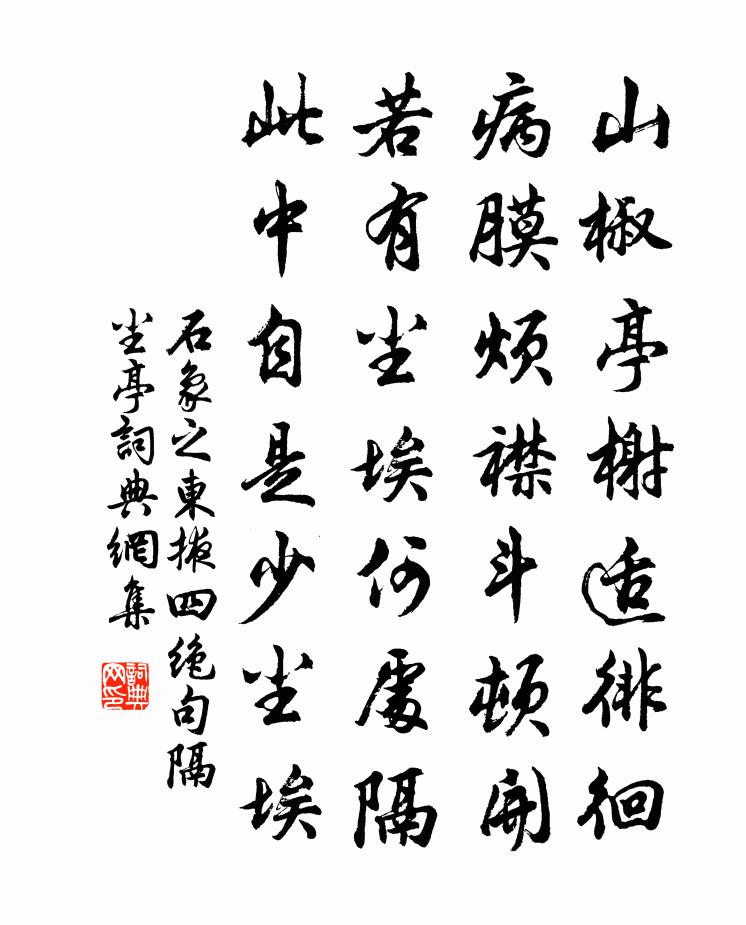 山椒亭榭适徘徊
病膜烦襟斗顿開
若有尘埃何處隔
此中自是少尘埃
石象之東掖四絶句隔
尘亭詞典網集
詞典网印